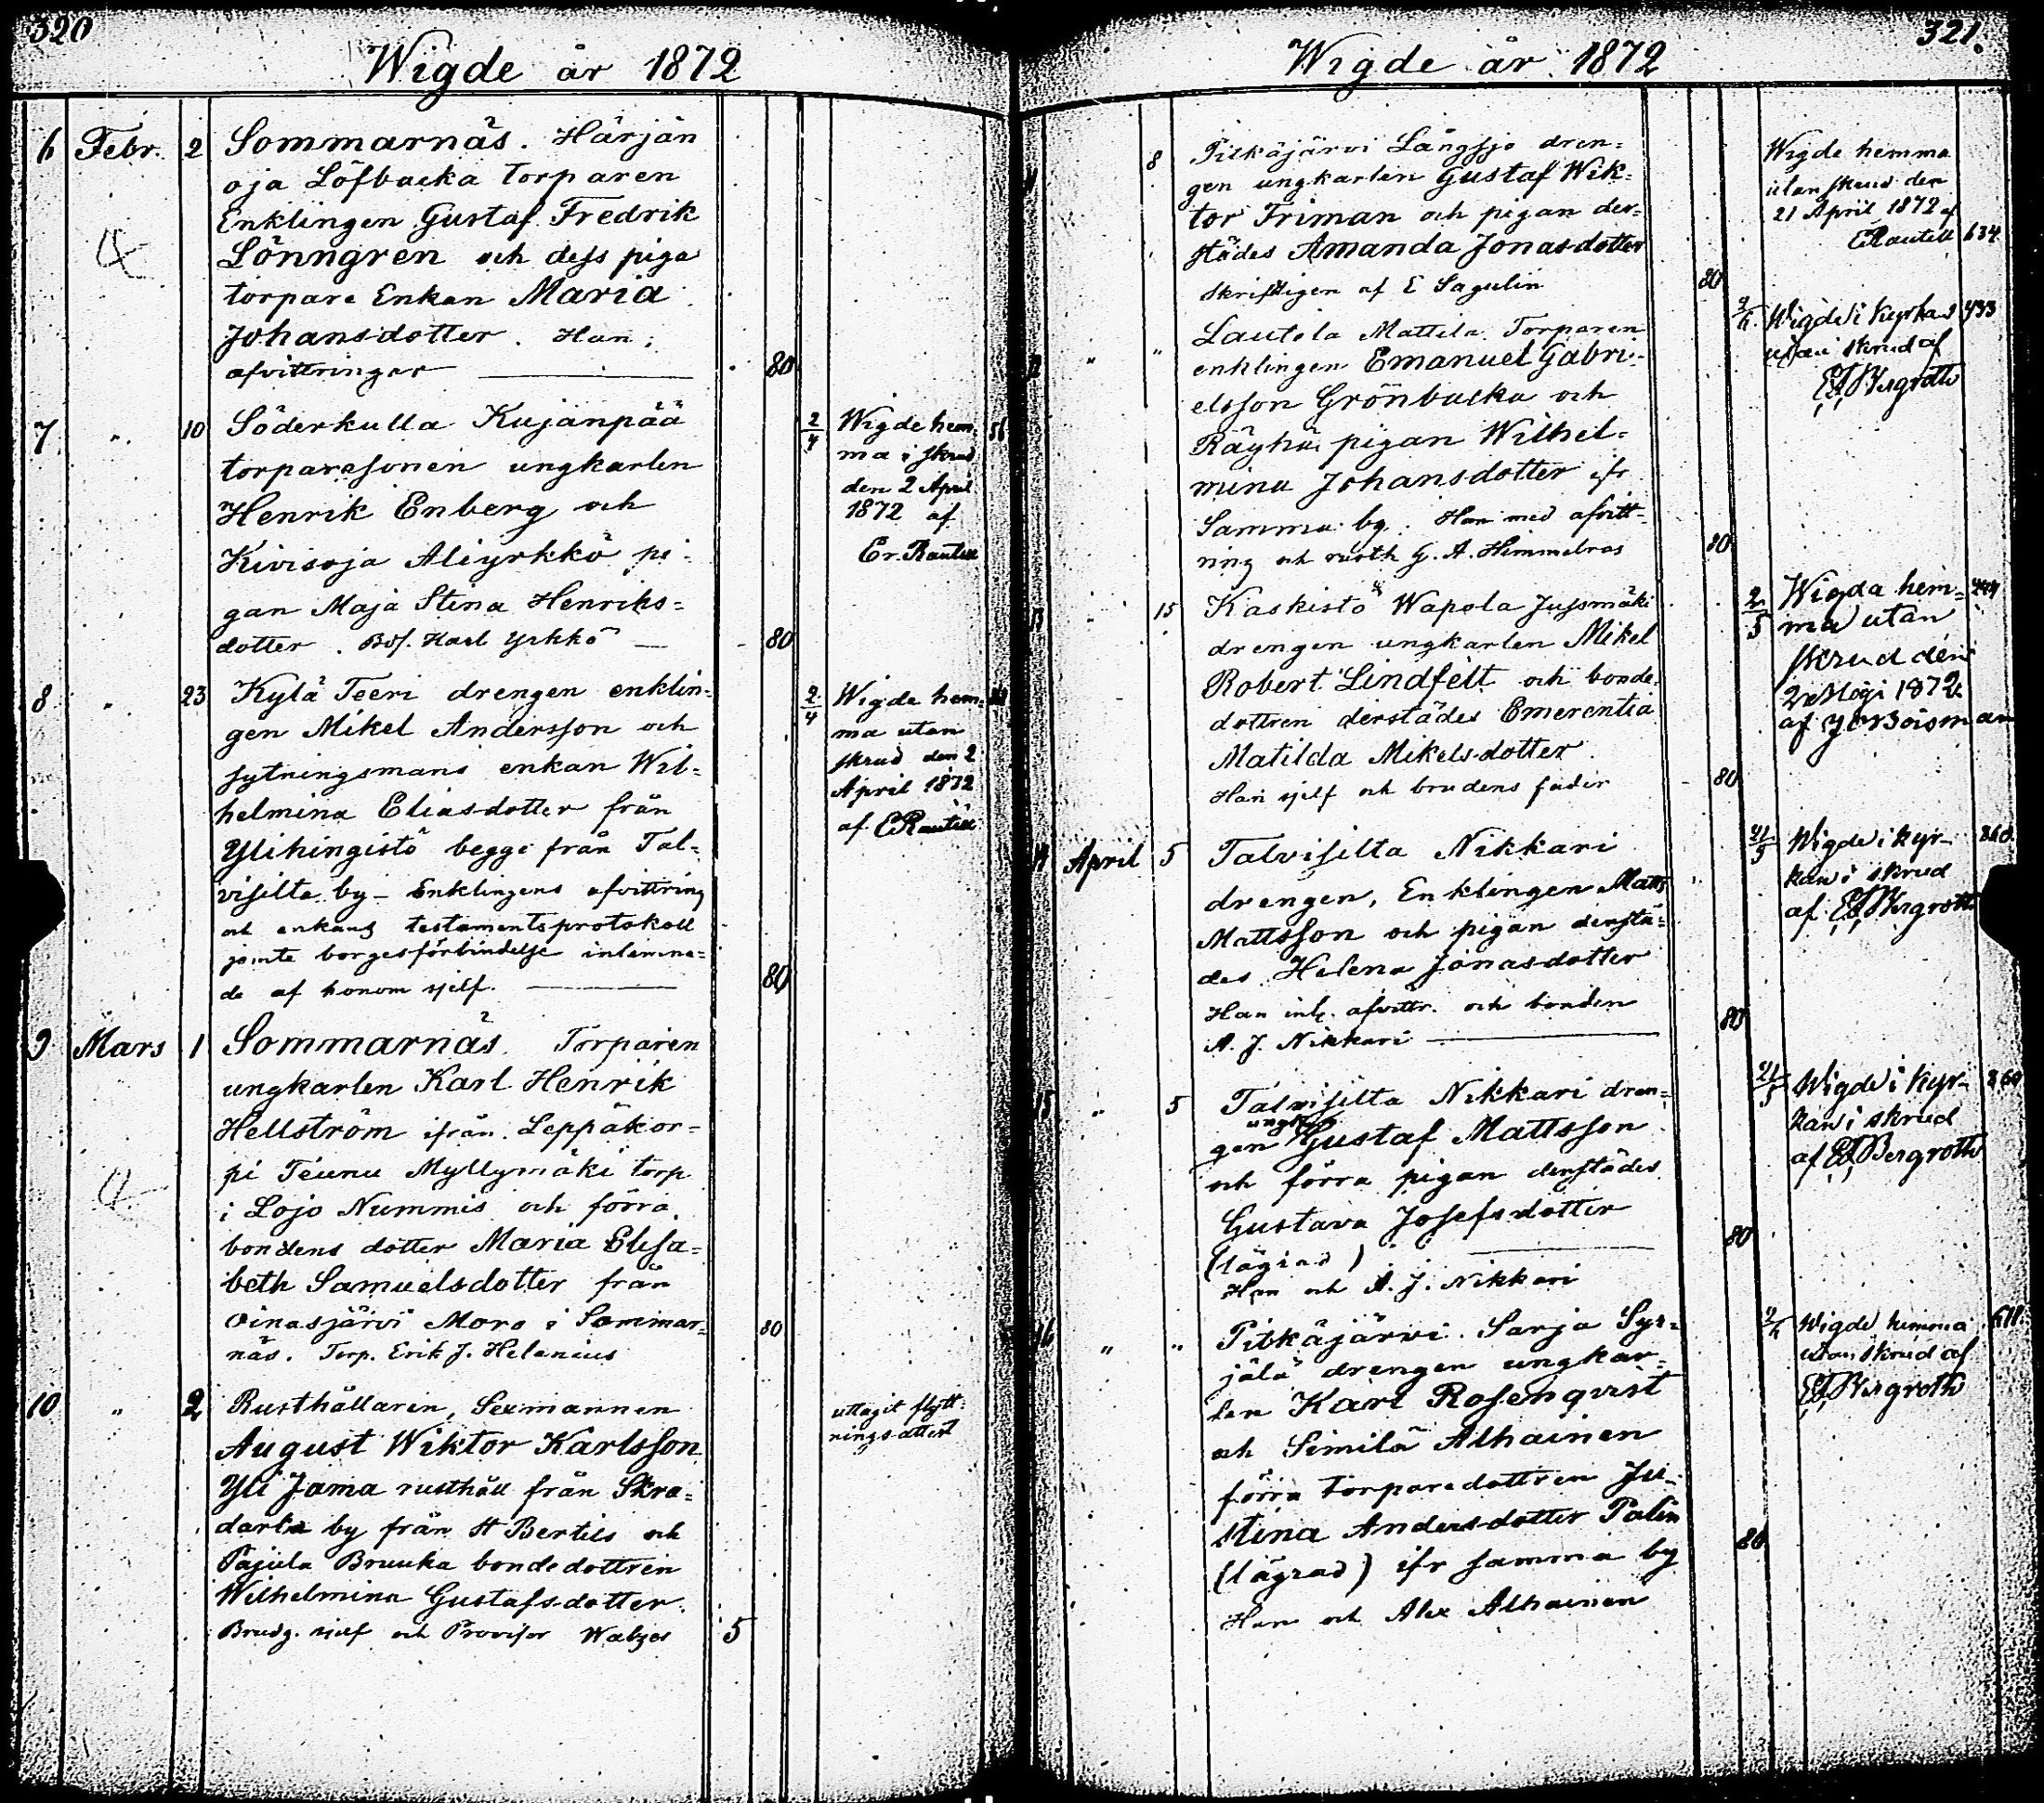 320
Wigde år 1872
6 Febr. 2 Sommarnäs. Härjän
oja Löfbacka torparen
Enklingen Gustaf Fredrik
Lönngren och dess piga
torpare Enkan Maria
Johansdotter. Han;
afvittringar 80
7 " 10 Söderkulla Kujanpää
torparesonen ungkarlen
Henrik Enberg och
Kivisoja Aliyrkkö pi-
gan Maja Stina Henriks=
dotter. Karl Yrkkö 80
2/4 Wigde hem-
ma i skrud
den 2 April
1872 af
Er. Rautell
8 " 23 Kylä Teeri drengen enklin-
gen Mikel Andersson och
sytningsmans enkan Wil=
helmina Eliasdotter från
Ylihingistö begge från Tal-
visilta by - Enklingens afvittring
och enkans testamentsprotokoll
jemte borgesförbindelse inlemna=
de af honom sjelf. 80
2/4 Wigde hem-
ma utan
skrud den 2
April 1872
af ERautell
9 Mars 1 Sommarnäs. Torparen
ungkarlen Karl Henrik
Hellström ifrån Leppäkor-
pi Teunu Myllymäki torp
i Lojo Nummis och förra
bondens dotter Maria Elisa=
beth Samuelsdotter från
Oinasjärvi Moro i Sommar-
näs. Torp. Erik J. Helenius 80
10 " 2 Rusthållaren, Sexmannen
August Wiktor Karlsson
Yli Jama rusthåll från Skra-
darla by från St Bertils och
Pajula Bruuka bondedottren
Wilhelmina Gustafsdotter.
Brudg. sjelf och Provisor 5
uttagit flytt-
ningsattest
321.
Wigde år 1872
8 Pitkäjärvi Långsjö dren=
gen ungkarlen Gustaf Wik-
tor Friman och pigan der-
städes Amanda Jonasdotter
skriftligen af E Sagulin 80
Wigde hemma
utan skrud den
21 April 1872 af
ERautell 634
12 " " Lautela Mattila Torparen
enklingen Emanuel Gabri-
elsson Grönbacka och
Räyhä pigan Wilhel=
mina Johansdotter ifr
Samma by. Han med afvitt-
ning och rusth G. A. Himmelroos 80
Wigde i kyrkan 433
utan skrud af
EJBergroth
13 " 15 Kaskistö Wapola Jussmäki
drengen ungkarlen Mikel
Robert Lindfelt och bonde-
dottren derstädes Emerentia
Matilda Mikelsdotter
Han sjelf och brudens fader 80
2/5 Wigda hem-
ma utan
skrud den
2 Maji 1872
af Boisman
14 April 5 Talvisilta Nikkari
drengen, Enklingen Matts
Mattsson och pigan derstä-
des Helena Jonasdotter
Han inl. afvittr. och bonden
A. J. Nikkari 80
21/5 Wigde i kyr- 860
kan i skrud
af EJBergroth
15 " 5 Talvisilta Nikkari dren-
gen ungk. Gustaf Mattsson
och förra pigan derstädes
Gustava Josefsdotter
(lägrad) 80
Han och A. J. Nikkari
21/5 Wigde i kyr- 860
kan i skrud
af EJBergroth
16 " " Pitkäjärvi. Sarja Syr-
jälä drengen ungkar-
len Karl Rosenqvist
och Simila Alhainen
förra torparedottren Ju-
stina Andersdotter Palin
(lägrad) ifr samma by 80
Han och Alex Alhainen
Wigde hemma 611.
utan skrud af
EJBergroth